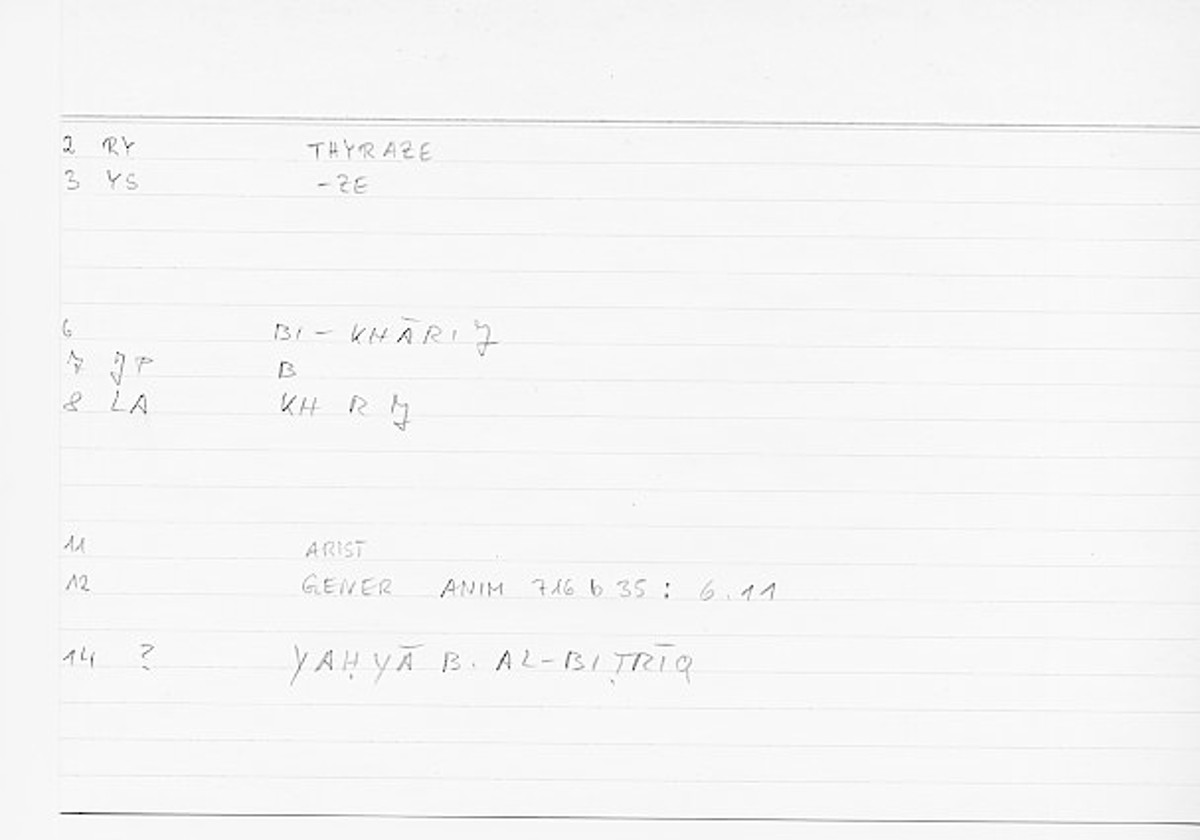 2 RY THYRAZE
3 YS -ZE
6 BI-KHĀRIJ
7 JP B
8 LA KH R J
11 ARIST
12 GENER ANIM 716 b 35 : 6.11
14 ? YAḤYĀ B. AL-BIṬRĪQ